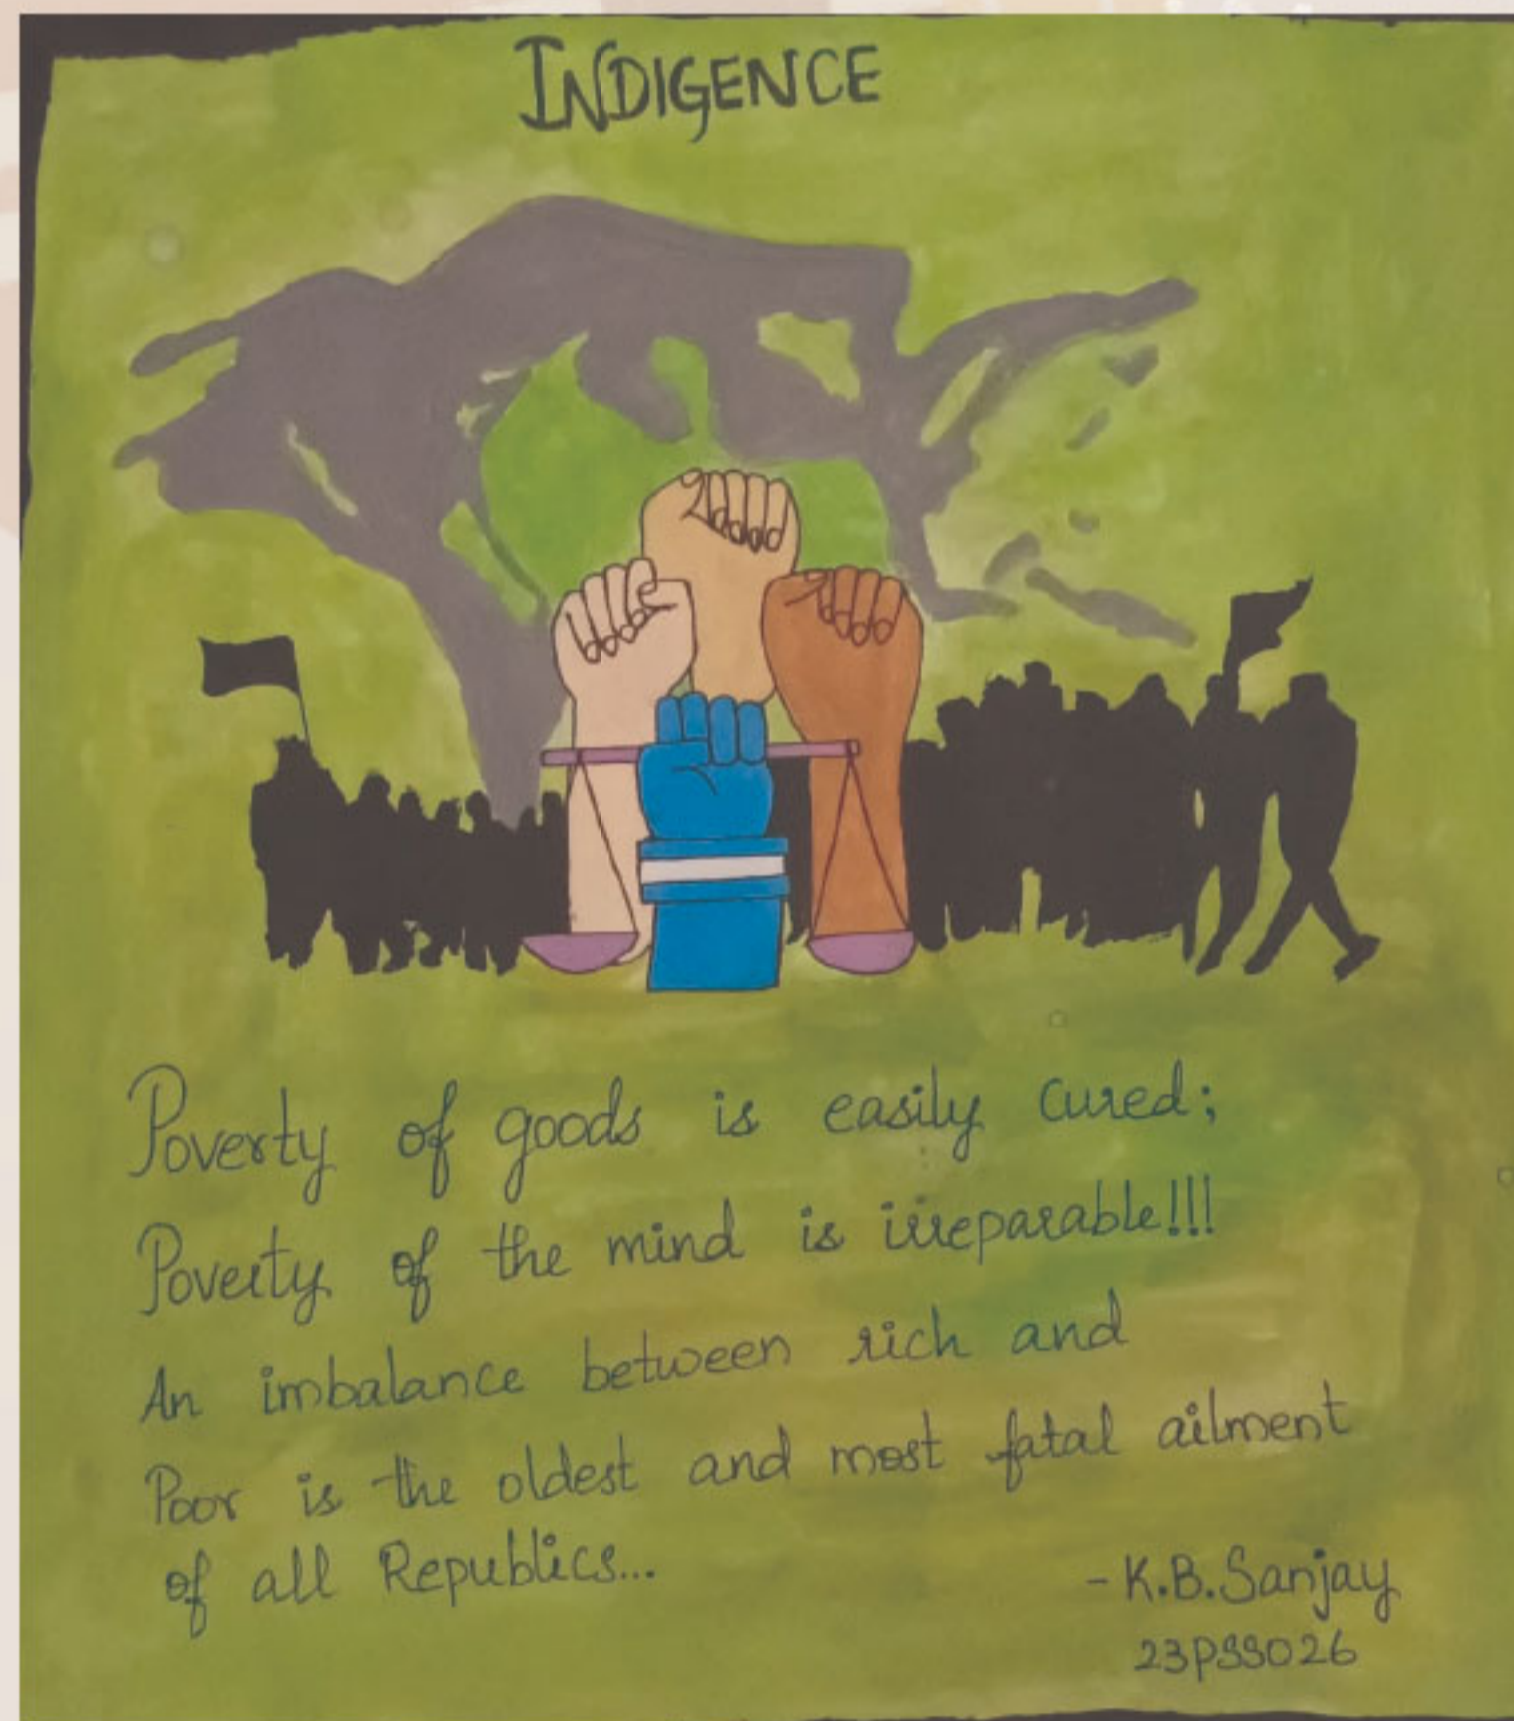 INDIGENCE
Poverty of goods is easily cured;
Poverty of the mind is irreparable!!!
An imbalance between rich and
Poor is the oldest and most fatal ailment
of all Republics...
- K.B.Sanjay
23PSS026